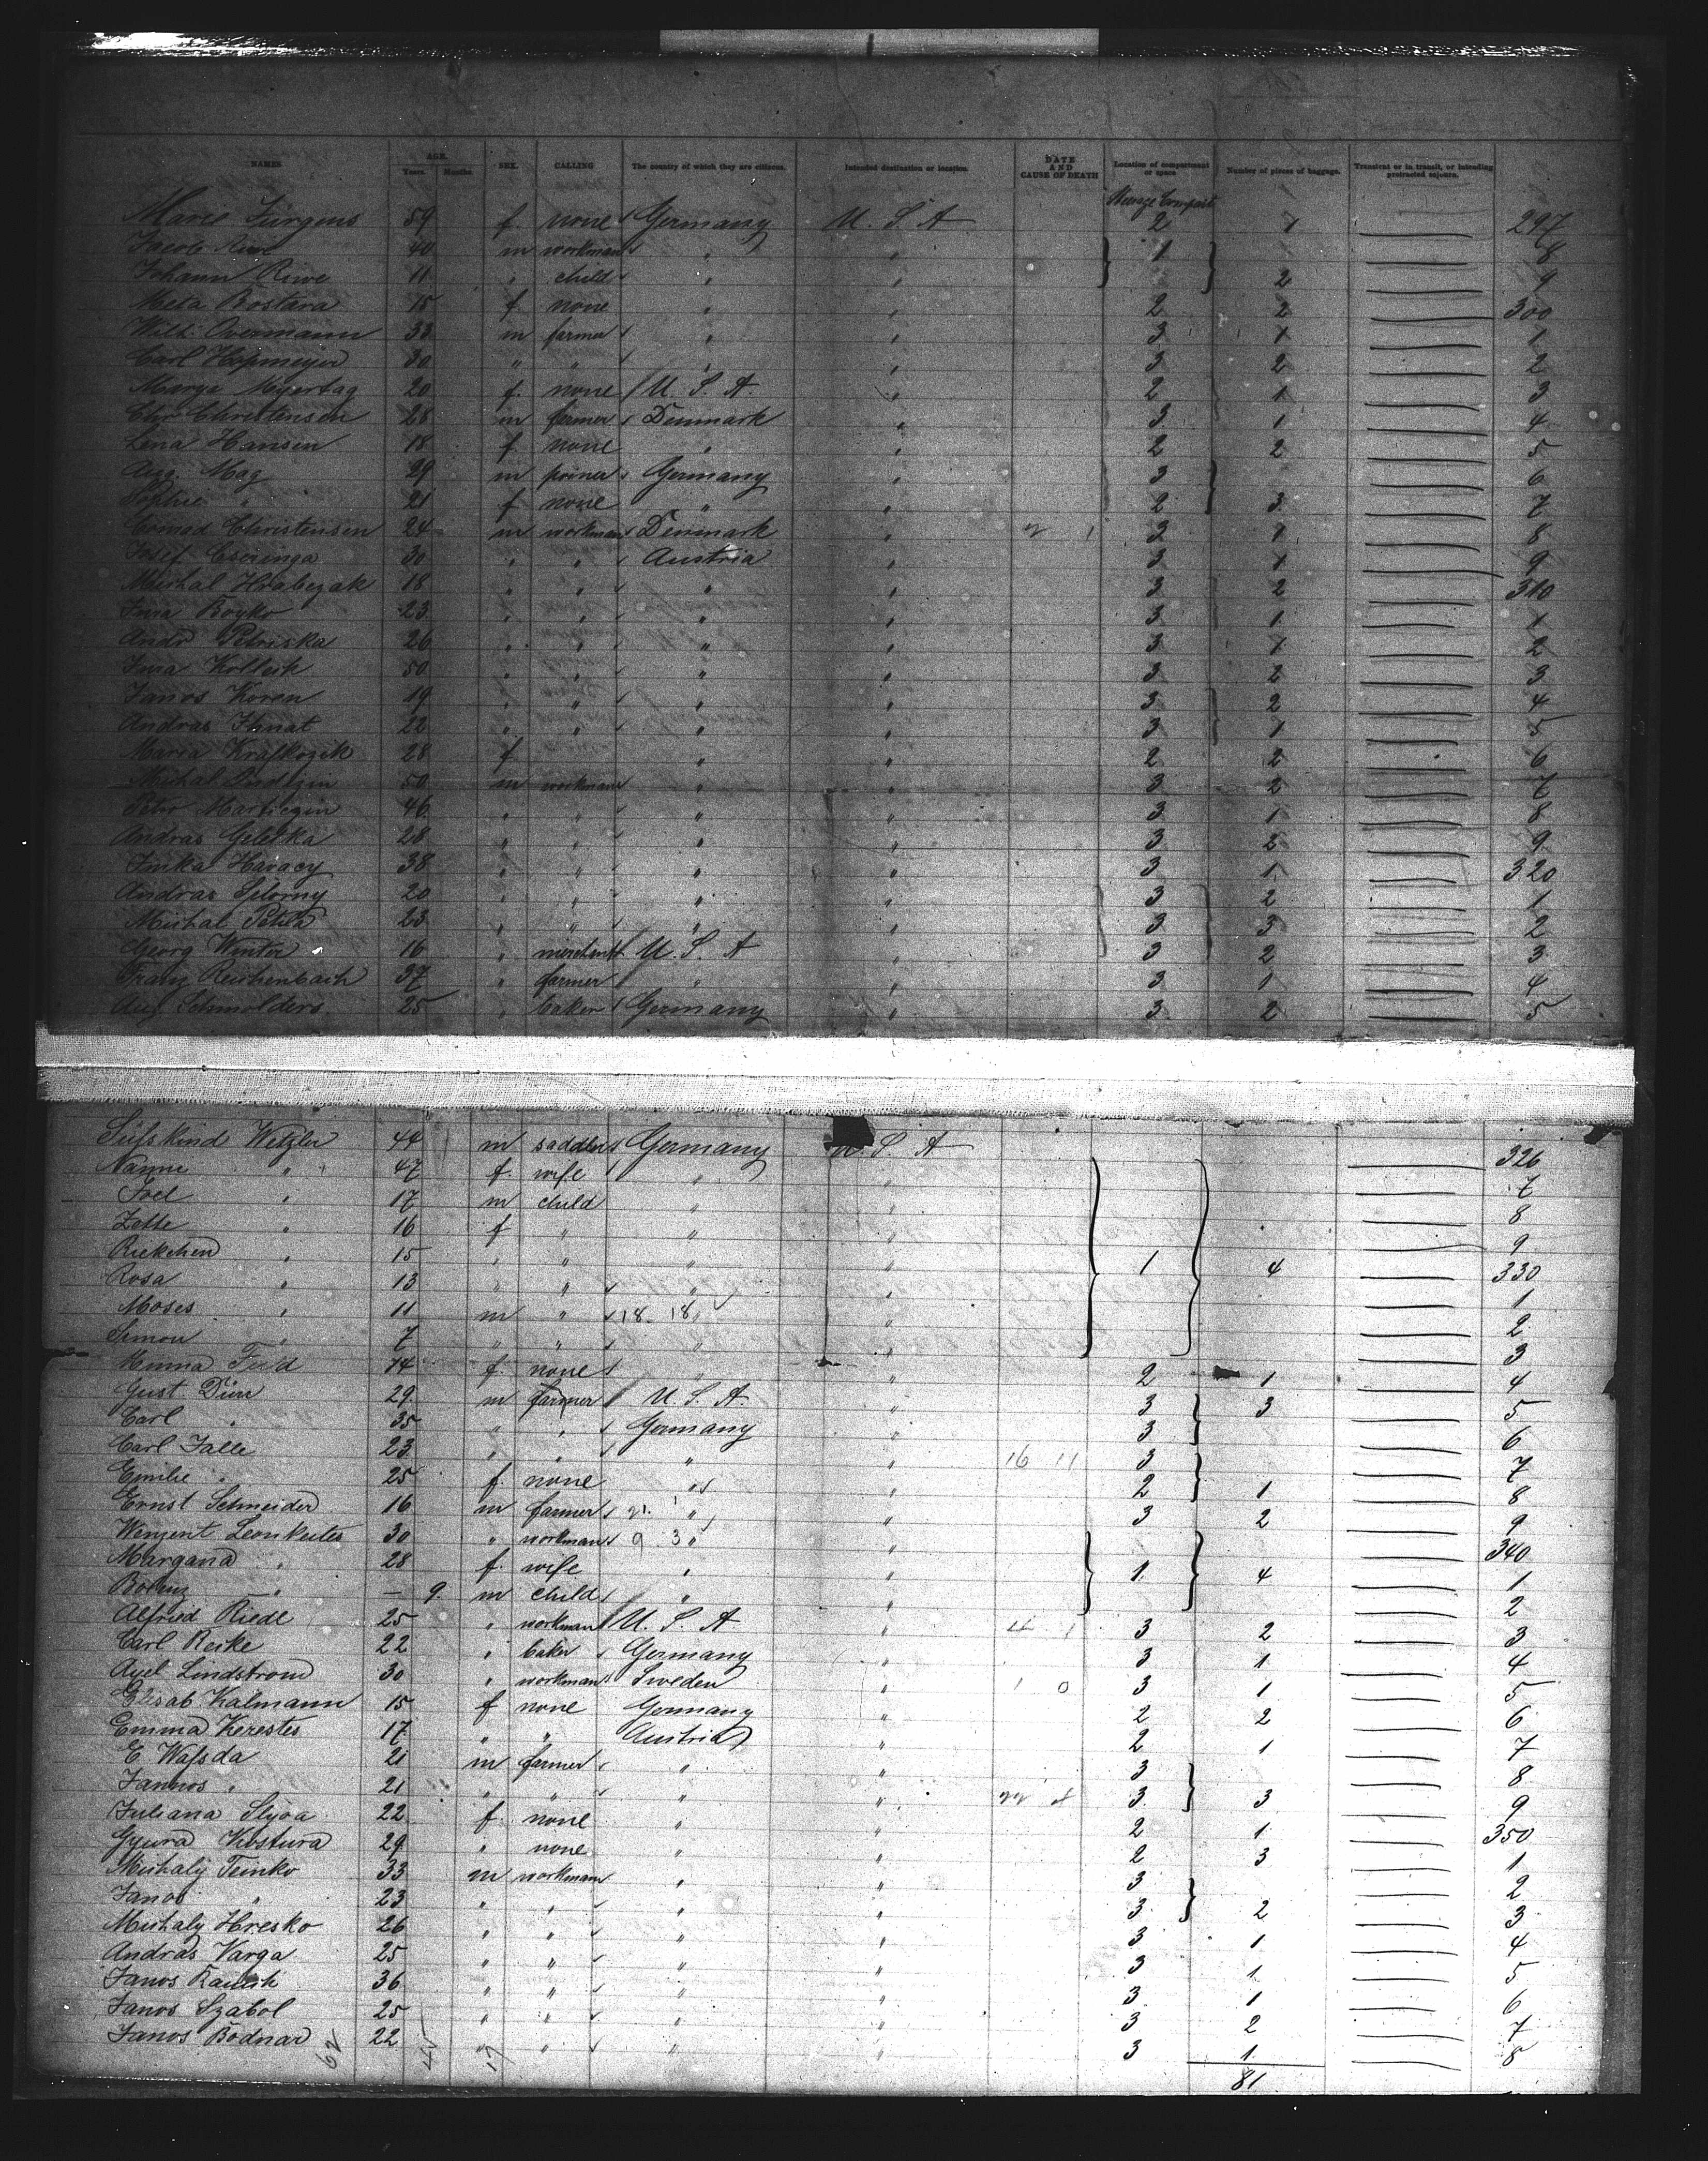 NAMES AGE. Years. Months. SEX. CALLING The country of which they are citizens. Intended destination or location. DATE AND CAUSE OF DEATH Location of compartment or space Number of pieces of baggage. Transient or in transit, or intending protracted sojourn.
Steerage Compart
Marie Jürgens 59 f. none Germany U. S. A 2 1 297
Jacob 40 m workman " " 1 8
Johann Riwe 11 " child " " 2 9
Meta Rostara 15 f. none " " 2 2 300
Wilh. Overmann 33 m farmer " " 3 1 1
Carl Hopmeyer 30 " " " " 3 2 2
Marye Meyertag 20 f. none U. S. A. " 2 1 3
Chr. Christensen 28 m farmer Denmark " 3 1 4
Lena Hansen 18 f. none " " 2 2 5
Aug. Mag 29 m Germany " 3 6
Sophie " 21 f none " " 2 3 7
Conrad Christensen 24 m workman Denmark " 3 1 8
Josef 30 " " Austria " 3 1 9
Michal Hrabczak 18 " " " " 3 2 310
Boyko 23 " " " " 3 1 1
Andr Petriska 26 " " " " 3 1 2
50 " " " " 3 2 3
Janos Koren 19 " " " " 3 2 4
Andras Hnat 22 " " " " 3 1 5
Maria 28 f " " 2 2 6
Michal 50 m workman " " 3 2 7
Petr 46 " " " " 3 1 8
Andras Geletka 28 " " " " 3 2 9
Haracy 38 " " " " 3 1 320
Andras 20 " " " " 3 2 1
Michal 23 " " " " 3 3 2
Georg Winter 16 " merchant U. S. A " 3 2 3
Franz Reichenbach 37 " farmer " " 3 1 4
Aug. Schmolders 25 " baker Germany " 3 2 5
Süfskind Wetzler 44 m saddler Germany U. S. A 326
Nanni " 47 f. wife " " 7
Joel " 17 m child " " 8
Zette " 16 f " " " 9
Riekchen " 15 " " " " 1 4 330
Rosa " 13 " " " " 1
Moses " 11 m " 18 18 " " 2
Simon " 7 " " " " 3
Minna 14 f. none " " 2 1 4
Gust. Dürr 29 m farmer U. S. A. " 3 3 5
Carl " 35 " " Germany " 3 6
Carl Jalle 23 " " " " 16 11 3 7
Emilie " 25 f. none " " 2 1 8
Ernst Schneider 16 m farmer " " 3 2 9
30 " workman 9 3 " " 340
Margana " 28 f. wife " " 1 4 1
" — 9 m child " " 2
Alfried Riedl 25 " workman U. S. A " 3 2 3
Carl Reike 22 " baker Germany " 3 1 4
Axel Lindstrom 30 " workman Sweden " 1 0 3 1 5
Elisab. Kalmann 15 f none Germany " 2 2 6
Emma Kerestes 17 " " Austria " 2 1 7
E Wafsda 21 m farmer " " 3 8
Jannos " 21 " " " " 3 3 9
Juliana 22 f none " " 2 1 350
Gyura Kostura 29 " none " " 2 3 1
Mihaly Temko 33 m workman " " 3 2
Janos " 23 " " " " 3 2 3
Mihaly Hresko 26 " " " " 3 1 4
Andras Varga 25 " " " " 3 1 5
Janos 36 " " " " 3 1 6
Janos Szabol 25 " " " " 3 2 7
Janos Bodnar 22 " " " " 3 1 8
62 45 17 81